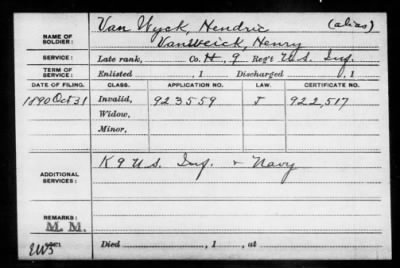 Van Wyck, Hendric (alias)
NAME OF SOLDIER: Vansweick, Henry
SERVICE: Late rank, Co. H, 9 Reg't U.S. Inf.
TERM OF SERVICE: Enlisted , 1 Discharged , 1
DATE OF FILING. CLASS. APPLICATION NO. LAW. CERTIFICATE NO.
1890 Oct 31 Invalid, 923559 J 922,517
Widow,
Minor,
ADDITIONAL SERVICES: K 9 U.S. Inf. & Navy
REMARKS: M. M.
EWS
Died , 1 , at